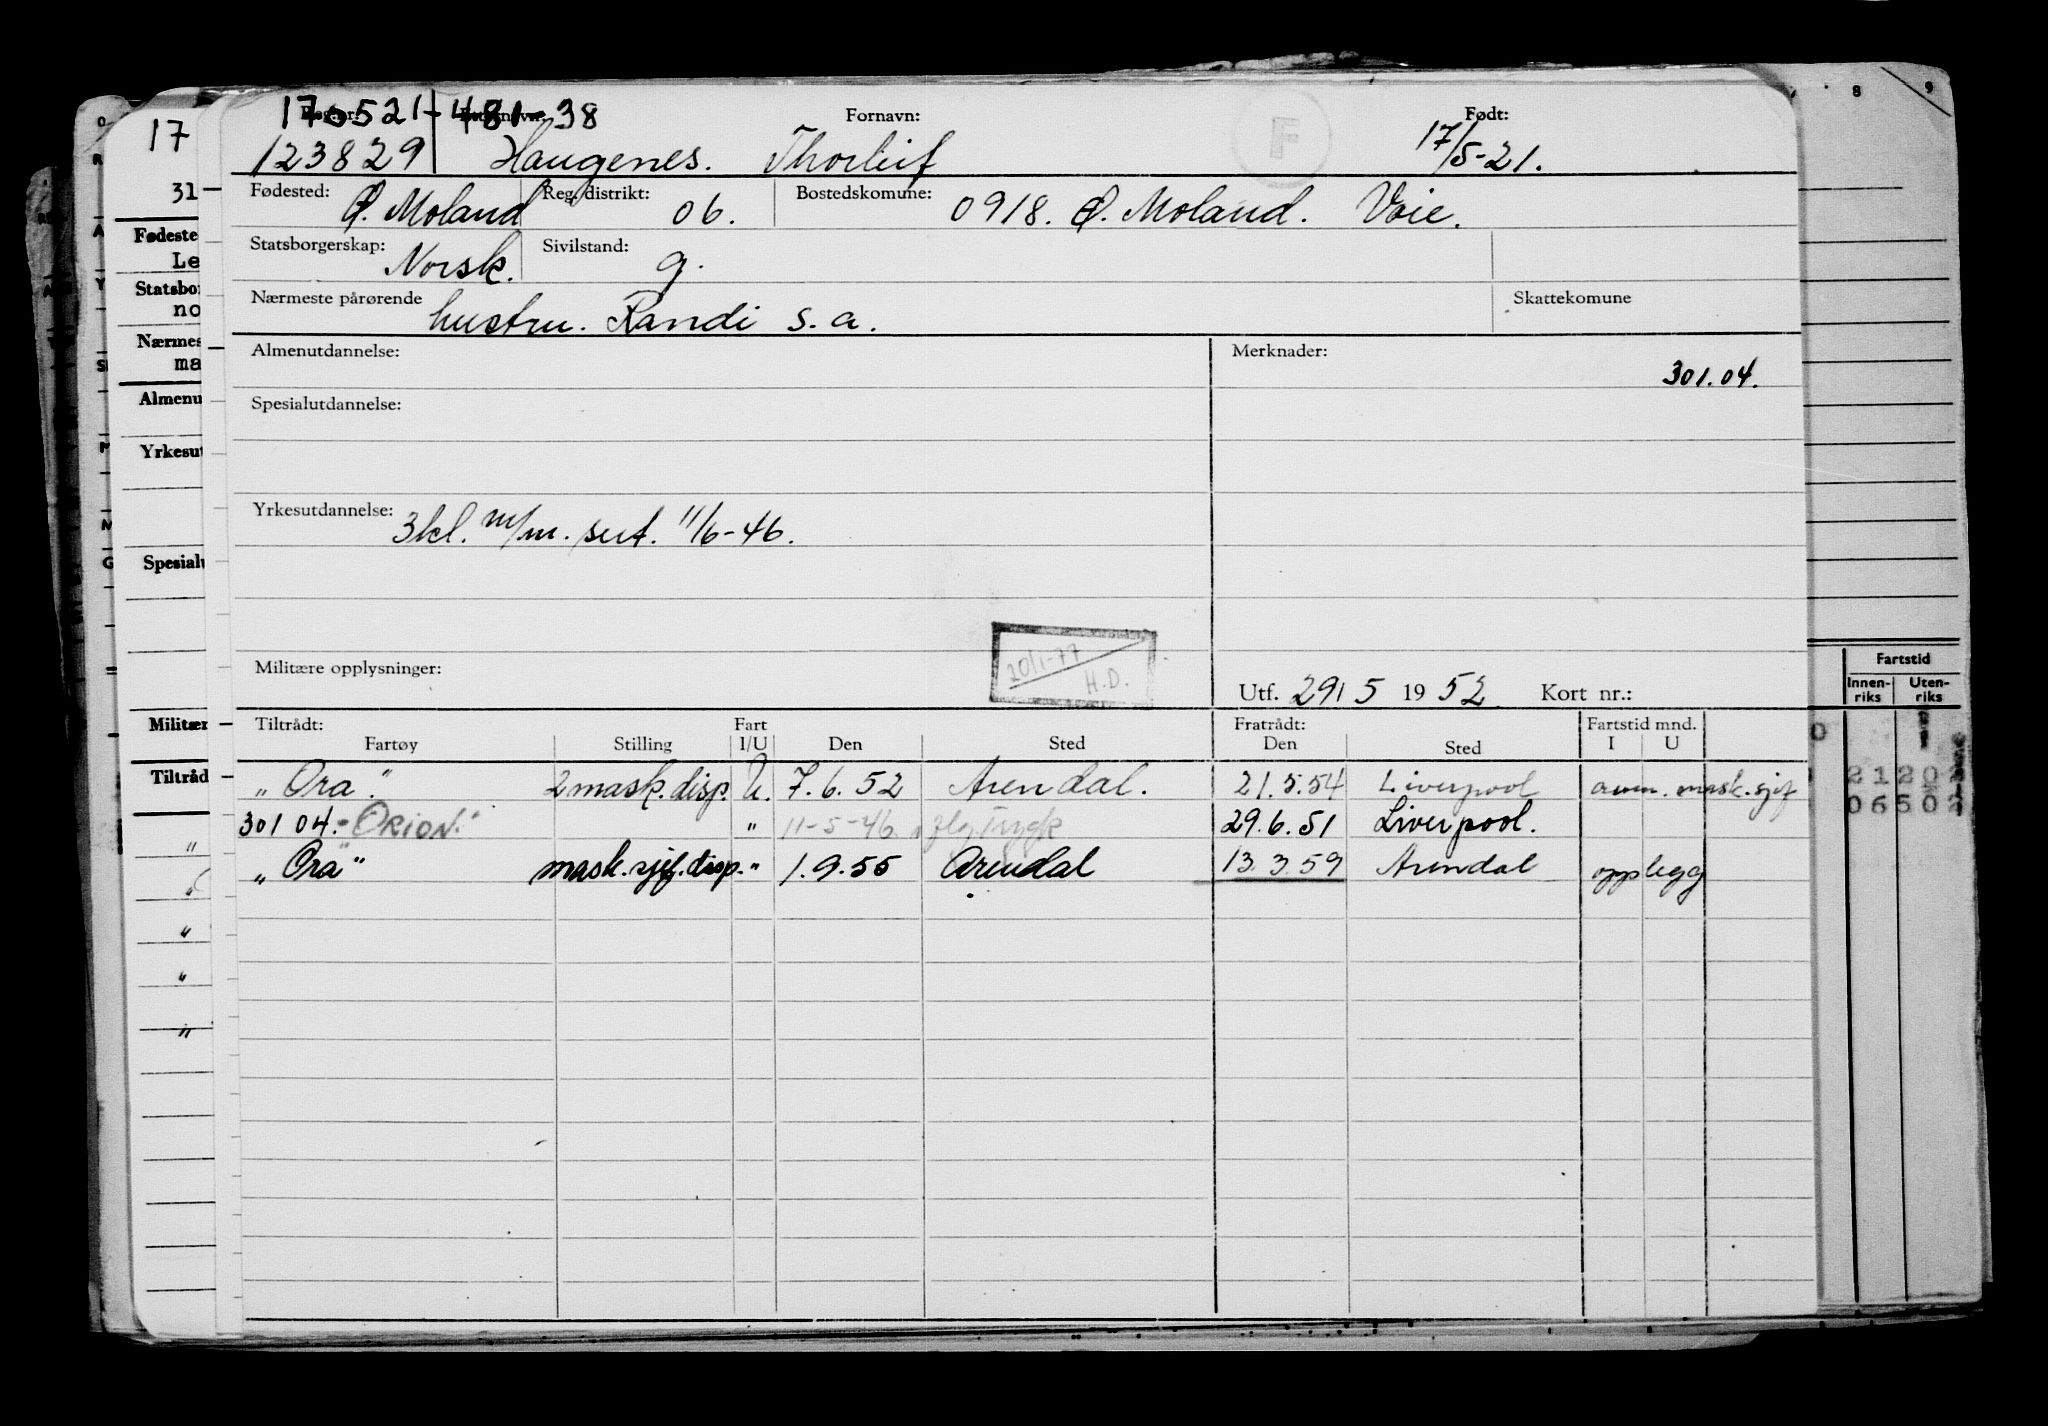 170521-481 38
Reg.nr. Fornavn: F Født:
123829 Haugenes. Thorleif 17/5-21.
Fødested: Ø. Moland Reg. distrikt: 06. Bostedskomune: 0918. Ø. Moland. Voie.
Statsborgerskap: Norsk. Sivilstand: g.
Nærmeste pårørende hustru. Randi s. a. Skattekomune
Almenutdannelse: Merknader:
301.04.
Spesialutdannelse:
Yrkesutdannelse: 3kl. m/m. sert. 11/6-46.
20/1-77
H.D.
Militære opplysninger:
Utf. 29/5 1952 Kort nr.:
Tiltrådt: Fart Fratrådt: Fartstid mnd.
Fartøy Stilling I/U Den Sted Den Sted I U
"Ora" 2 mask. disp. U. 7.6.52 Arendal. 21.5.54 Liverpool avm. mask.sjef
301 04.- "ORION." " 11-5-46 29.6.51 Liverpool.
"Ora" mask.sjef.disp. " 1.9.55 Arendal 13.3.59 Arendal opplegg
17
31
Fødeste
Le
Statsbor
no
Nærmes
ma
Almenu
Yrkesut
Spesialu
Militær
Tiltråd
8 9
Fartstid
Innen-riks Uten-riks
2120
06502